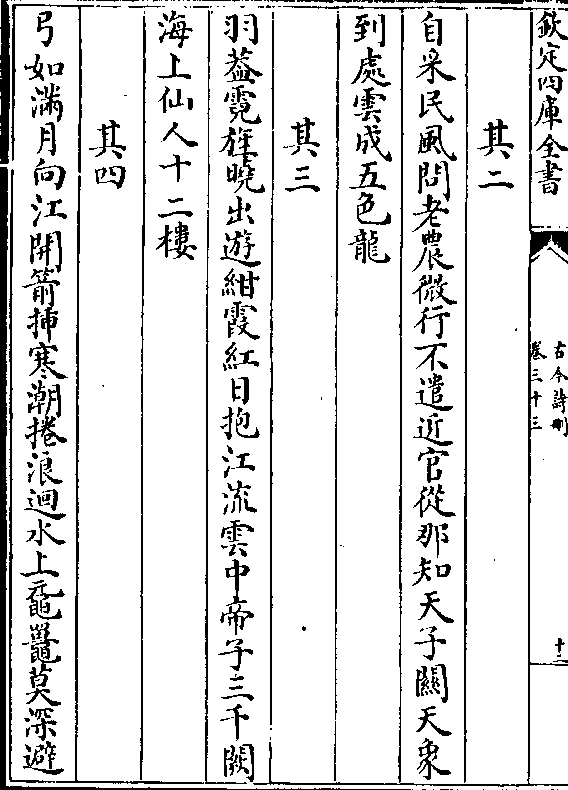 欽定四庫全書
古今詩刪
卷三十三
十二
其二
自采民風問老農微行不遣近官從那知天子關天象
到處雲成五色龍
其三
羽葢霓旌曉出遊紺霞紅日抱江流雲中帝子三千闕
海上仙人十二樓
其四
弓如滿月向江開箭揷寒潮捲浪迴水上黿鼉莫深避